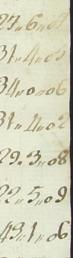 27„6„01
31„4„03
34„0„06
31„4„02
29„3„08
22„5„09
43„1„06